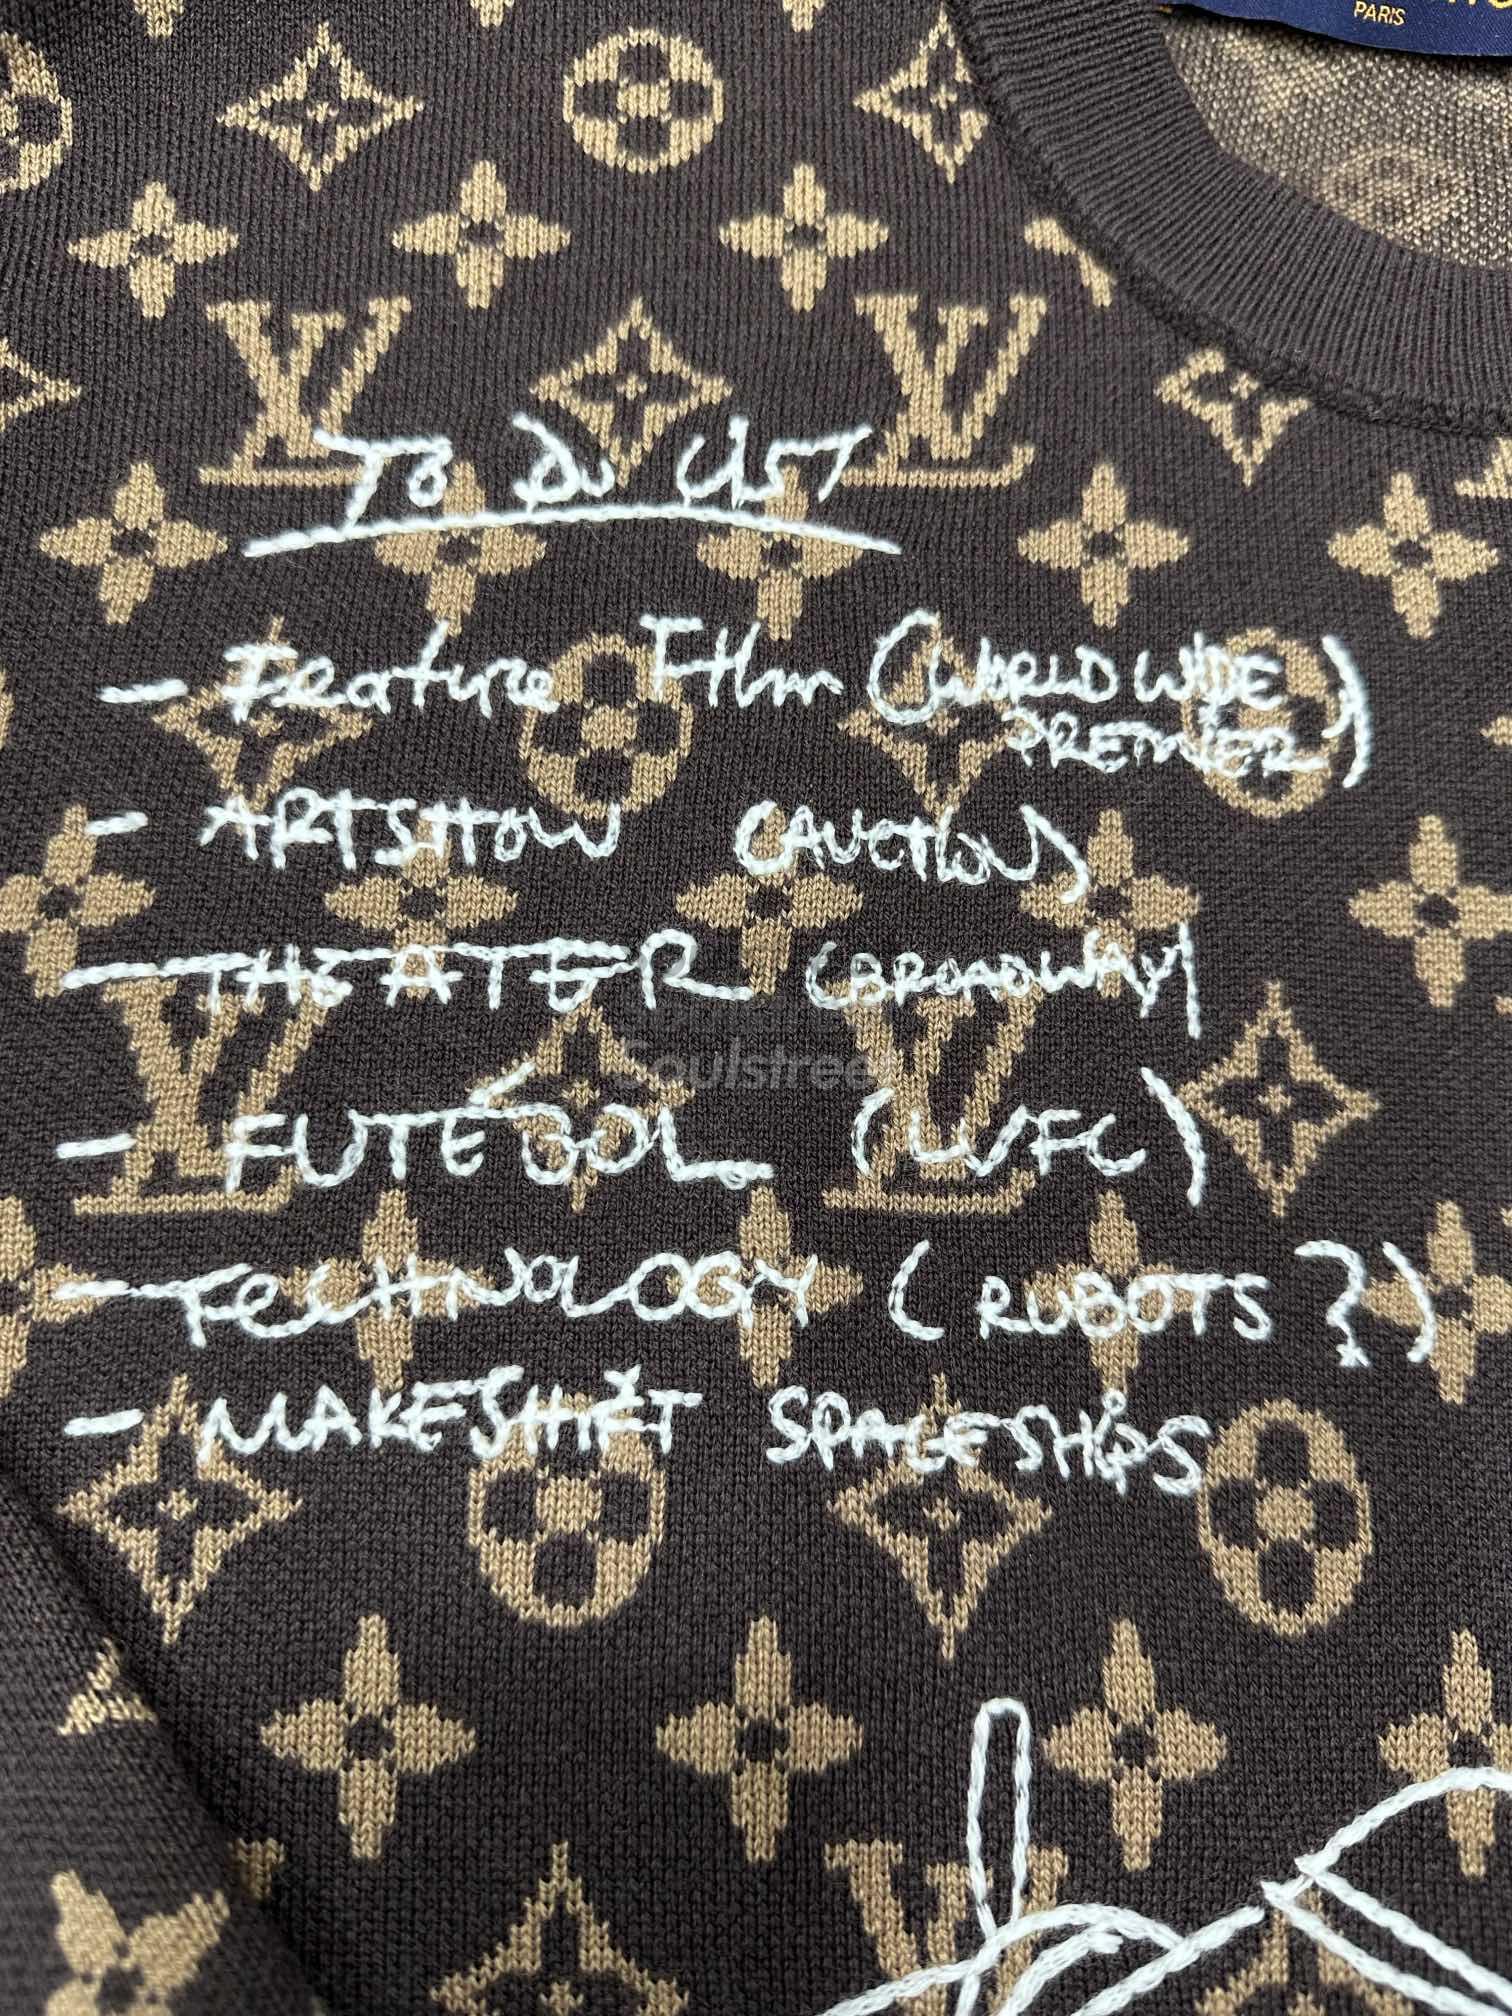 PARIS
TO DO LIST
- Feature Film (WORLD WIDE
PREMIER)
- ARTSHOW (AUCTION)
- THEATER (BROADWAY)
- FUTÉBOL (LVFC)
- TECHNOLOGY (ROBOTS?)
- MAKESHIFT SPACESHIPS
Soulstreet